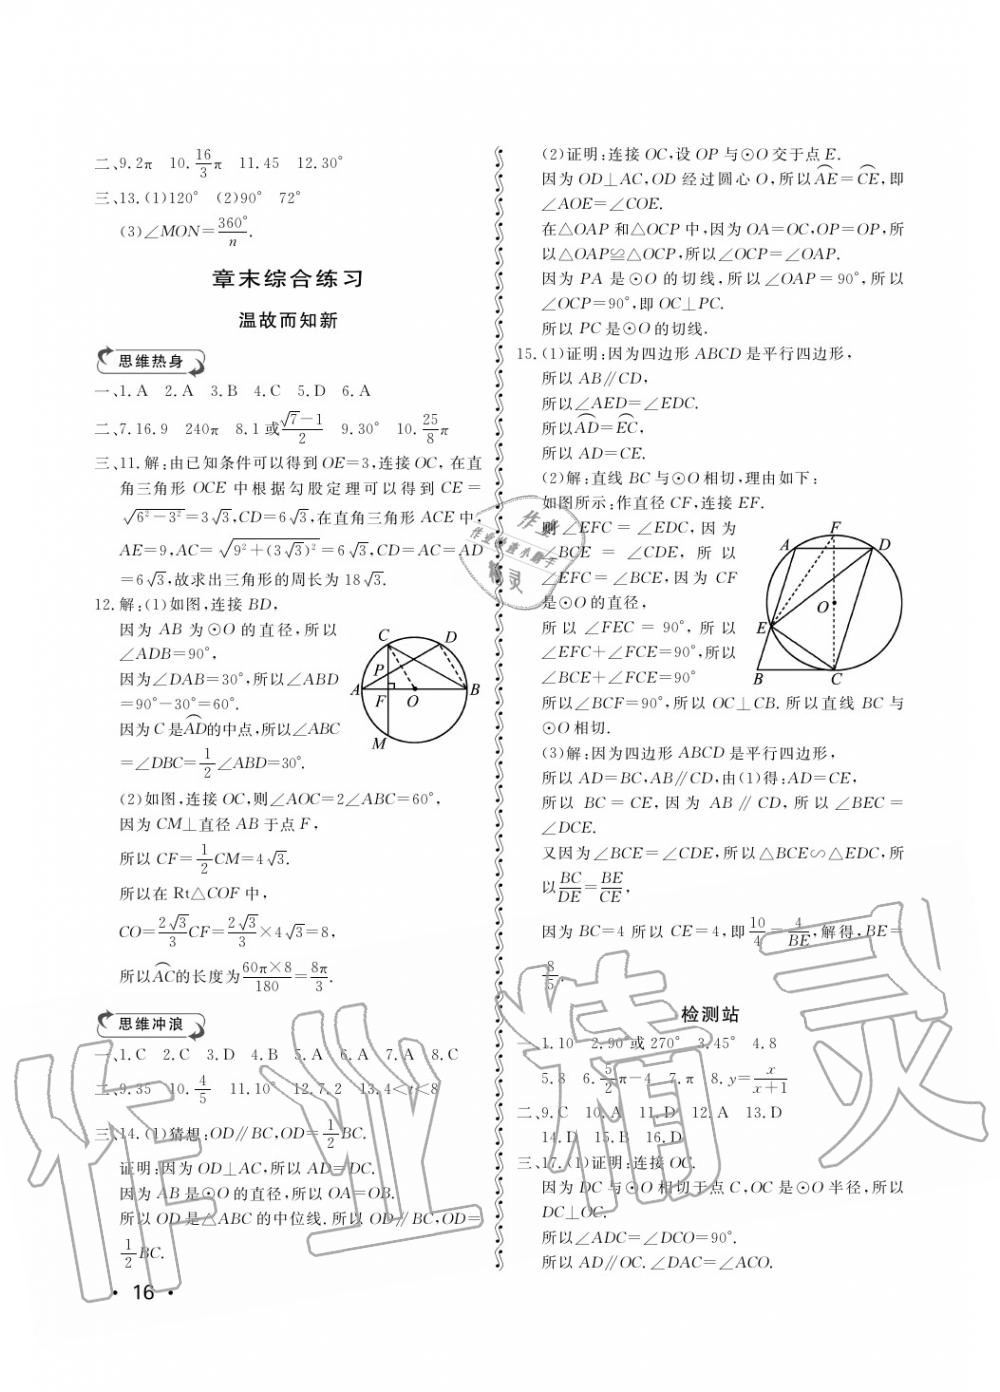 二、9.2π 10.16/3π 11.45 12.30°
三、13.(1)120° (2)90° 72°
(3)∠MON=360°/n.
章末综合练习
温故而知新
思维热身
一、1.A 2.A 3.B 4.C 5.D 6.A
二、7.16.9 240π 8.1或(√7-1)/2 9.30° 10.25/8π
三、11.解:由已知条件可以得到OE=3,连接OC,在直
角三角形OCE中根据勾股定理可以得到CE=
√(6²-3²)=3√3,CD=6√3,在直角三角形ACE中,
AE=9,AC=√(9²+(3√3)²)=6√3,CD=AC=AD
=6√3,故求出三角形的周长为18√3.
12.解:(1)如图,连接BD,
因为AB为⊙O的直径,所以
∠ADB=90°,
因为∠DAB=30°,所以∠ABD
=90°-30°=60°.
因为C是⌒AD的中点,所以∠ABC
=∠DBC=1/2∠ABD=30°.
(2)如图,连接OC,则∠AOC=2∠ABC=60°,
因为CM⊥直径AB于点F,
所以CF=1/2CM=4√3.
所以在Rt△COF中,
CO=2√3/3CF=2√3/3×4√3=8,
所以⌒AC的长度为60π×8/180=8π/3.
C D P A F O B M
思维冲浪
一、1.C 2.C 3.D 4.B 5.A 6.A 7.A 8.C
二、9.35 10.4/5 11.10° 12.7.2 13.4<r<8
三、14.(1)猜想:OD∥BC,OD=1/2BC.
证明:因为OD⊥AC,所以AD=DC.
因为AB是⊙O的直径,所以OA=OB.
所以OD是△ABC的中位线.所以OD∥BC,OD=
1/2BC.
· 16 ·
(2)证明:连接OC,设OP与⊙O交于点E.
因为OD⊥AC,OD经过圆心O,所以⌒AE=⌒CE,即
∠AOE=∠COE.
在△OAP和△OCP中,因为OA=OC,OP=OP,所
以△OAP≌△OCP,所以∠OCP=∠OAP.
因为PA是⊙O的切线,所以∠OAP=90°,所以
∠OCP=90°,即OC⊥PC.
所以PC是⊙O的切线.
15.(1)证明:因为四边形ABCD是平行四边形,
所以AB∥CD,
所以∠AED=∠EDC.
所以⌒AD=⌒EC,
所以AD=CE.
(2)解:直线BC与⊙O相切,理由如下:
如图所示:作直径CF,连接EF.
则∠EFC=∠EDC,因为
∠BCE=∠CDE,所以
∠EFC=∠BCE,因为CF
是⊙O的直径,
所以∠FEC=90°,所以
∠EFC+∠FCE=90°,所以
∠BCE+∠FCE=90°
所以∠BCF=90°,所以OC⊥CB.所以直线BC与
⊙O相切.
A F D O E B C
(3)解:因为四边形ABCD是平行四边形,
所以AD=BC,AB∥CD,由(1)得:AD=CE,
所以BC=CE,因为AB∥CD,所以∠BEC=
∠DCE.
又因为∠BCE=∠CDE,所以△BCE∽△EDC,所
以BC/DE=BE/CE,
因为BC=4所以CE=4,即10/4=4/BE,解得,BE=
8/5.
检测站
一、1.10 2.90°或270° 3.45° 4.8
5.8 6.5/2π-4 7.π 8.y=x/(x+1)
二、9.C 10.A 11.D 12.A 13.D
14.D 15.B 16.D
三、17.(1)证明:连接OC.
因为DC与⊙O相切于点C,OC是⊙O半径,所以
DC⊥OC.
所以∠ADC=∠DCO=90°.
所以AD∥OC.∠DAC=∠ACO.
作业精灵